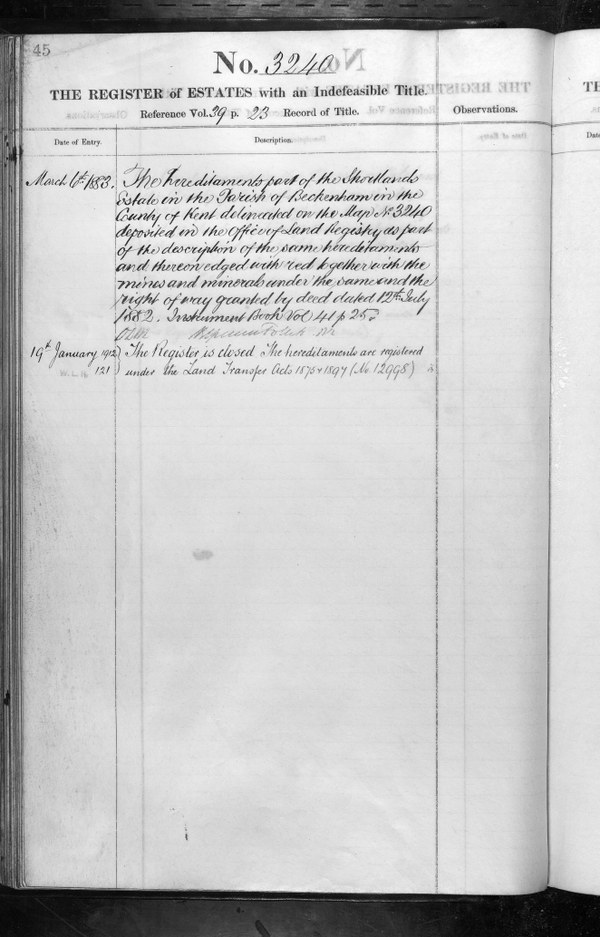 45
No. 3240
THE REGISTER of ESTATES with an Indefeasible Title.
Reference Vol. 39 p. 23 Record of Title.
Observations.
Date of Entry.
Description.
March 6th 1883.
The hereditaments part of the Shortlands
Estate in the Parish of Beckenham in the
County of Kent delineated on the Map No 3240
deposited in the Office of Land Registry as part
of the description of the same hereditaments
and thereon edged with red together with the
mines and minerals under the same and the
right of way granted by deed dated 12th July
1882. Instrument Book Vol 41 p 25.
19th January 1912
121
The Register is closed. The hereditaments are registered
under the Land Transfer Acts 1875 & 1897 (No 12998)
TH
Date